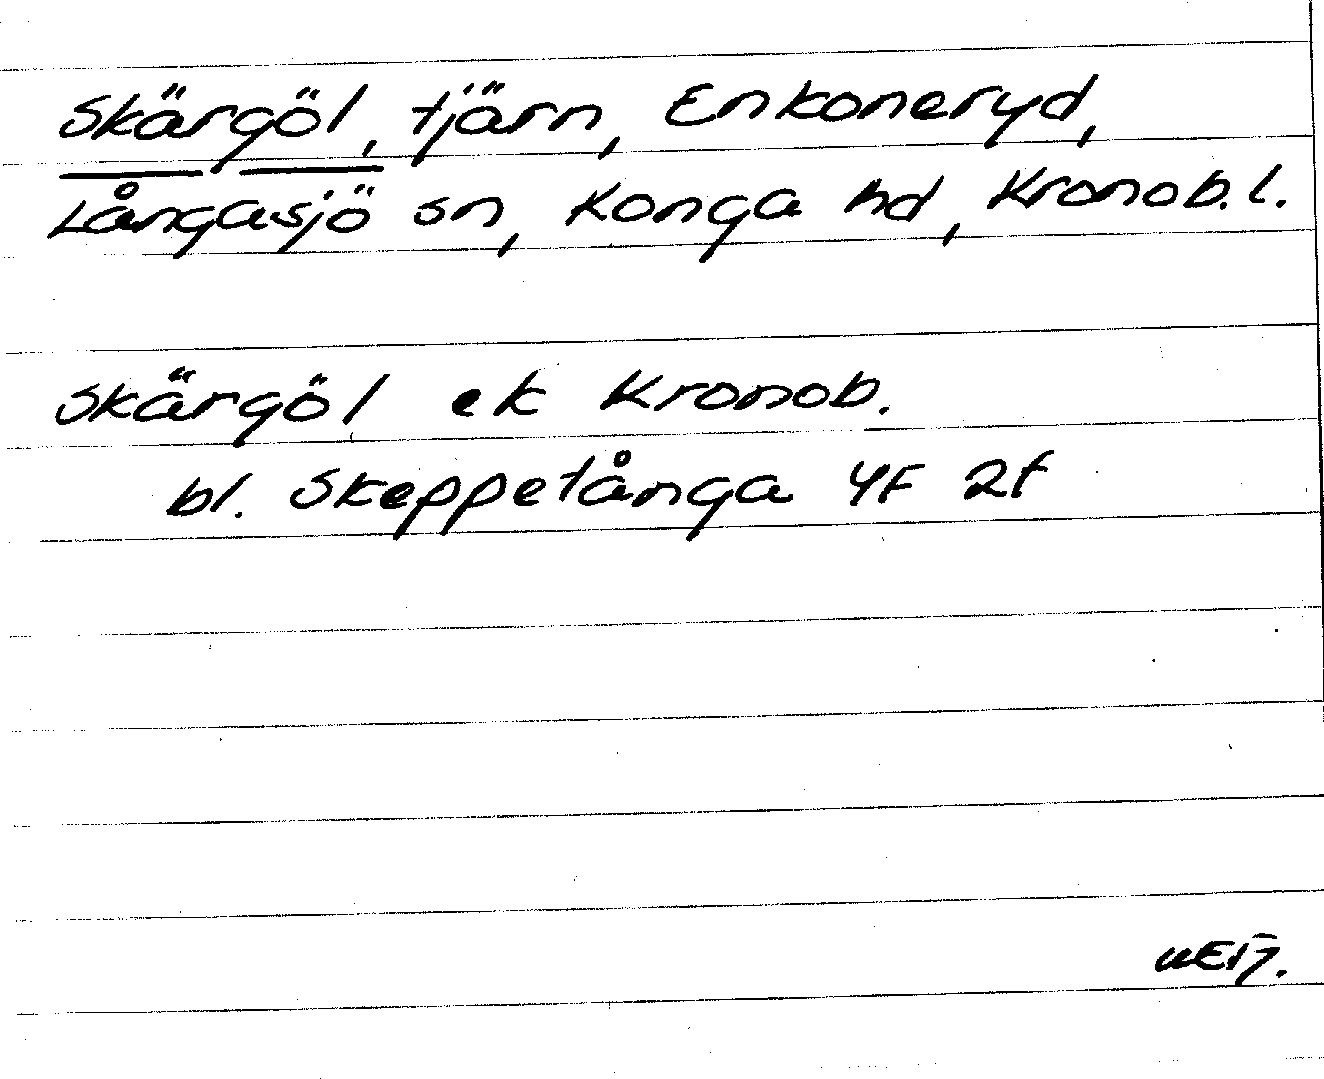 Skärgöl, tjärn, Enkoneryd,
Långasjö sn, Konga hd, Kronob. l.
Skärgöl ek Kronob.
bl. Skeppetånga 4F 2f